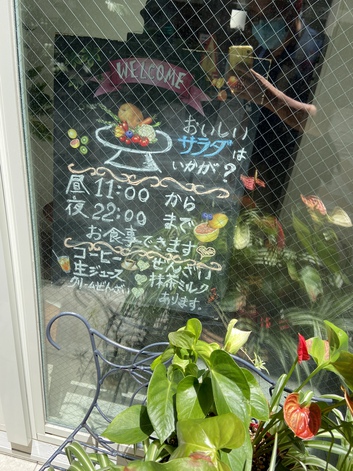 WELCOME
おいしい
サラダは
いかが?
昼 11:00 から
夜 22:00 まで
お食事できます
コーヒー ぜんざい
生ジュース 抹茶ミルク
クリームぜんざい あります。